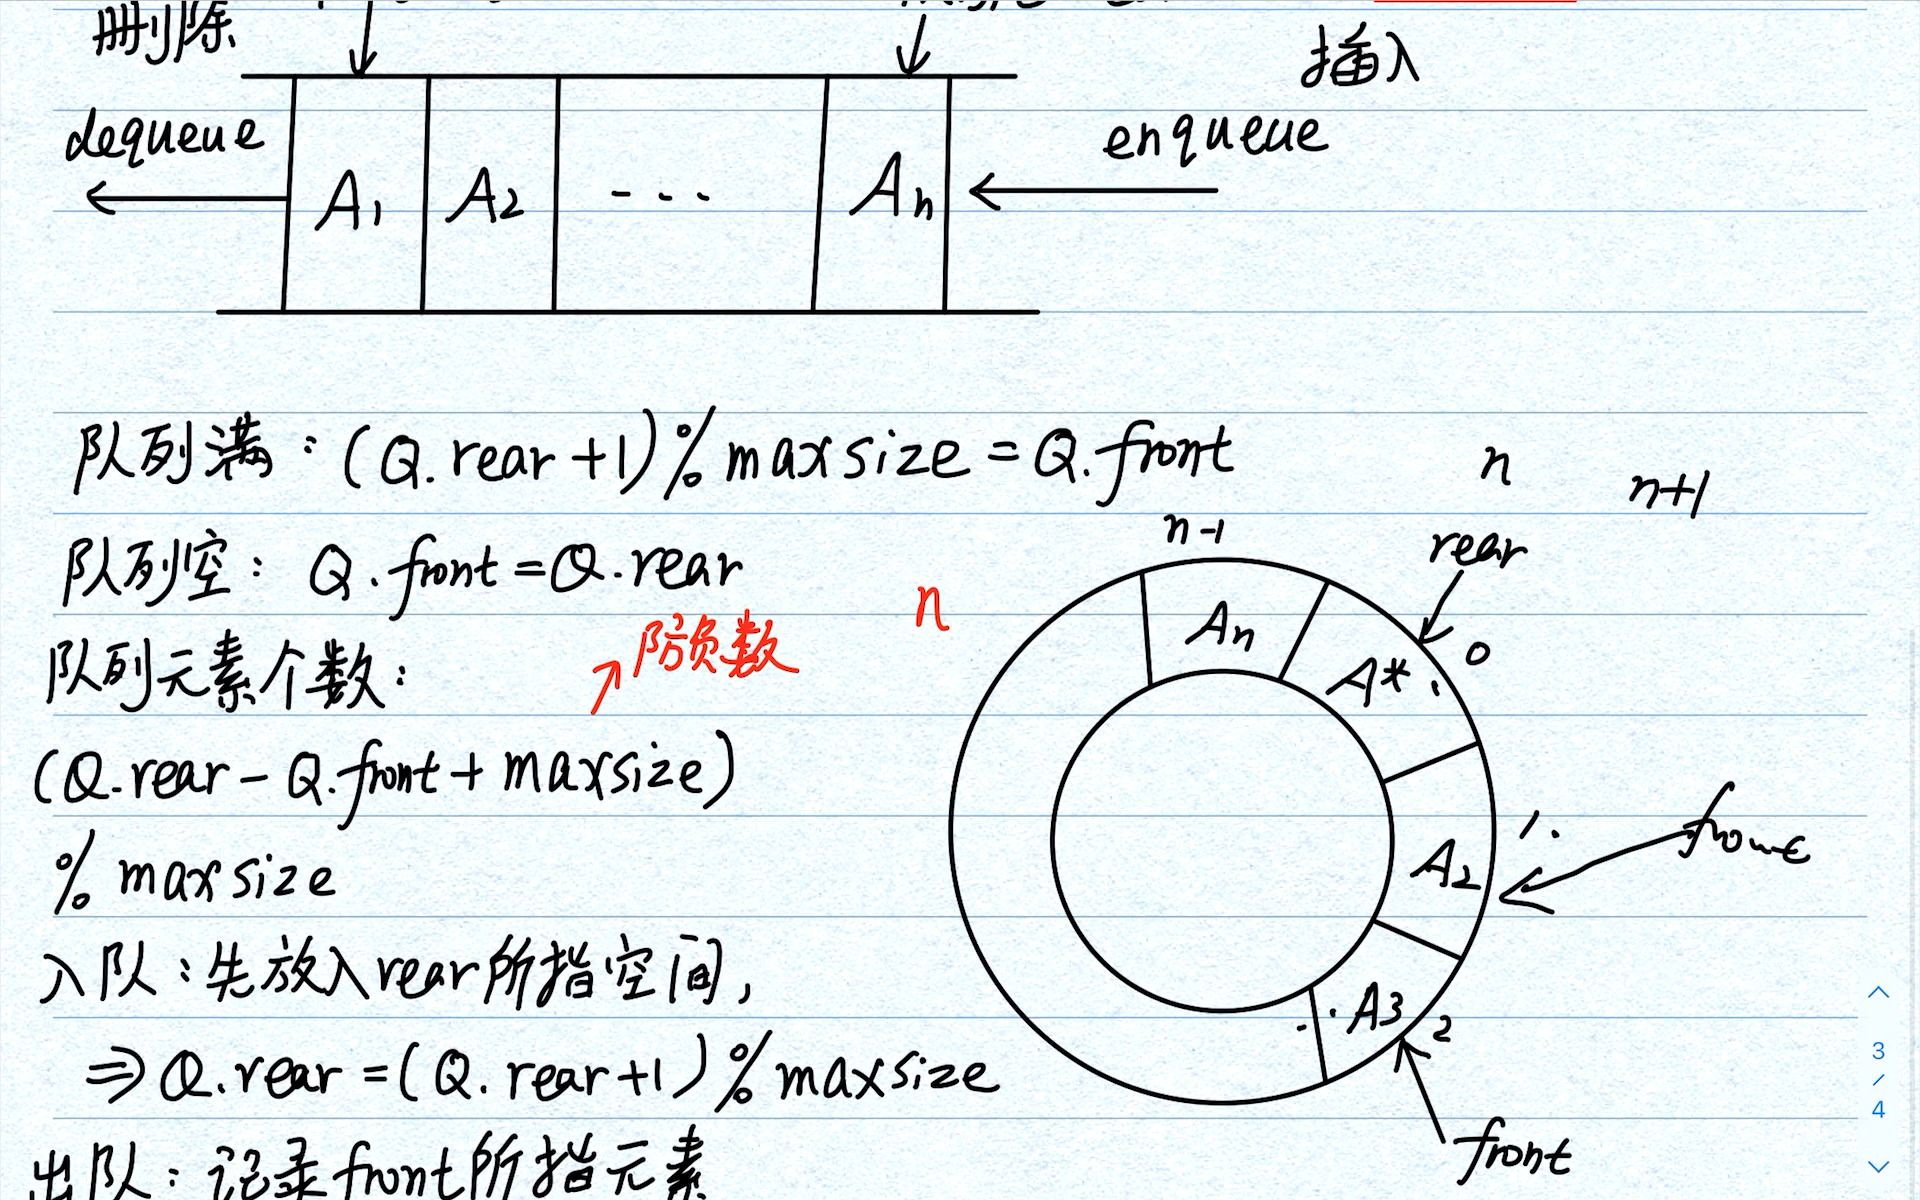 删除
插入
dequeue
enqueue
A1 A2 --- An
队列满：(Q.rear+1)%maxsize=Q.front
n
n+1
队列空：Q.front=Q.rear
n
防负数
队列元素个数：
(Q.rear-Q.front+maxsize)
%maxsize
入队：先放入rear所指空间，
⇒Q.rear=(Q.rear+1)%maxsize
出队：记录front所指元素
n-1
rear
An
A*
0
1.
front
A2
A3
2
front
3
/
4